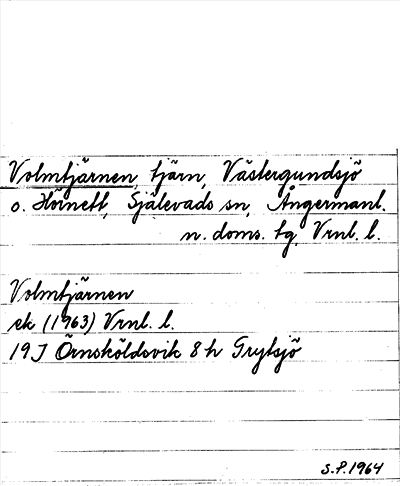 Volmtjärnen, tjärn, Västergundsjö
o. Hörnett, Själevads sn, Ångermanl.
n. doms. tg, Vrnl. l.
Volmtjärnen
ek (1963) Vrnl. l.
19J Örnsköldsvik 8 h Trytsjö
S.P. 1964